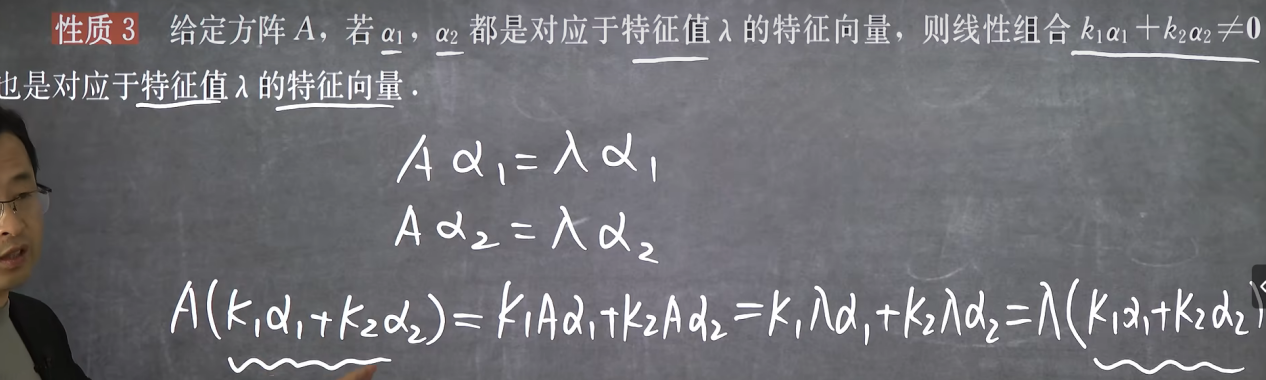 性质 3 给定方阵 A，若 α₁，α₂ 都是对应于特征值 λ 的特征向量，则线性组合 k₁α₁＋k₂α₂≠0
也是对应于特征值 λ 的特征向量．
Aα₁=λα₁
Aα₂=λα₂
A(k₁α₁+k₂α₂)=k₁Aα₁+k₂Aα₂=k₁λα₁+k₂λα₂=λ(k₁α₁+k₂α₂)